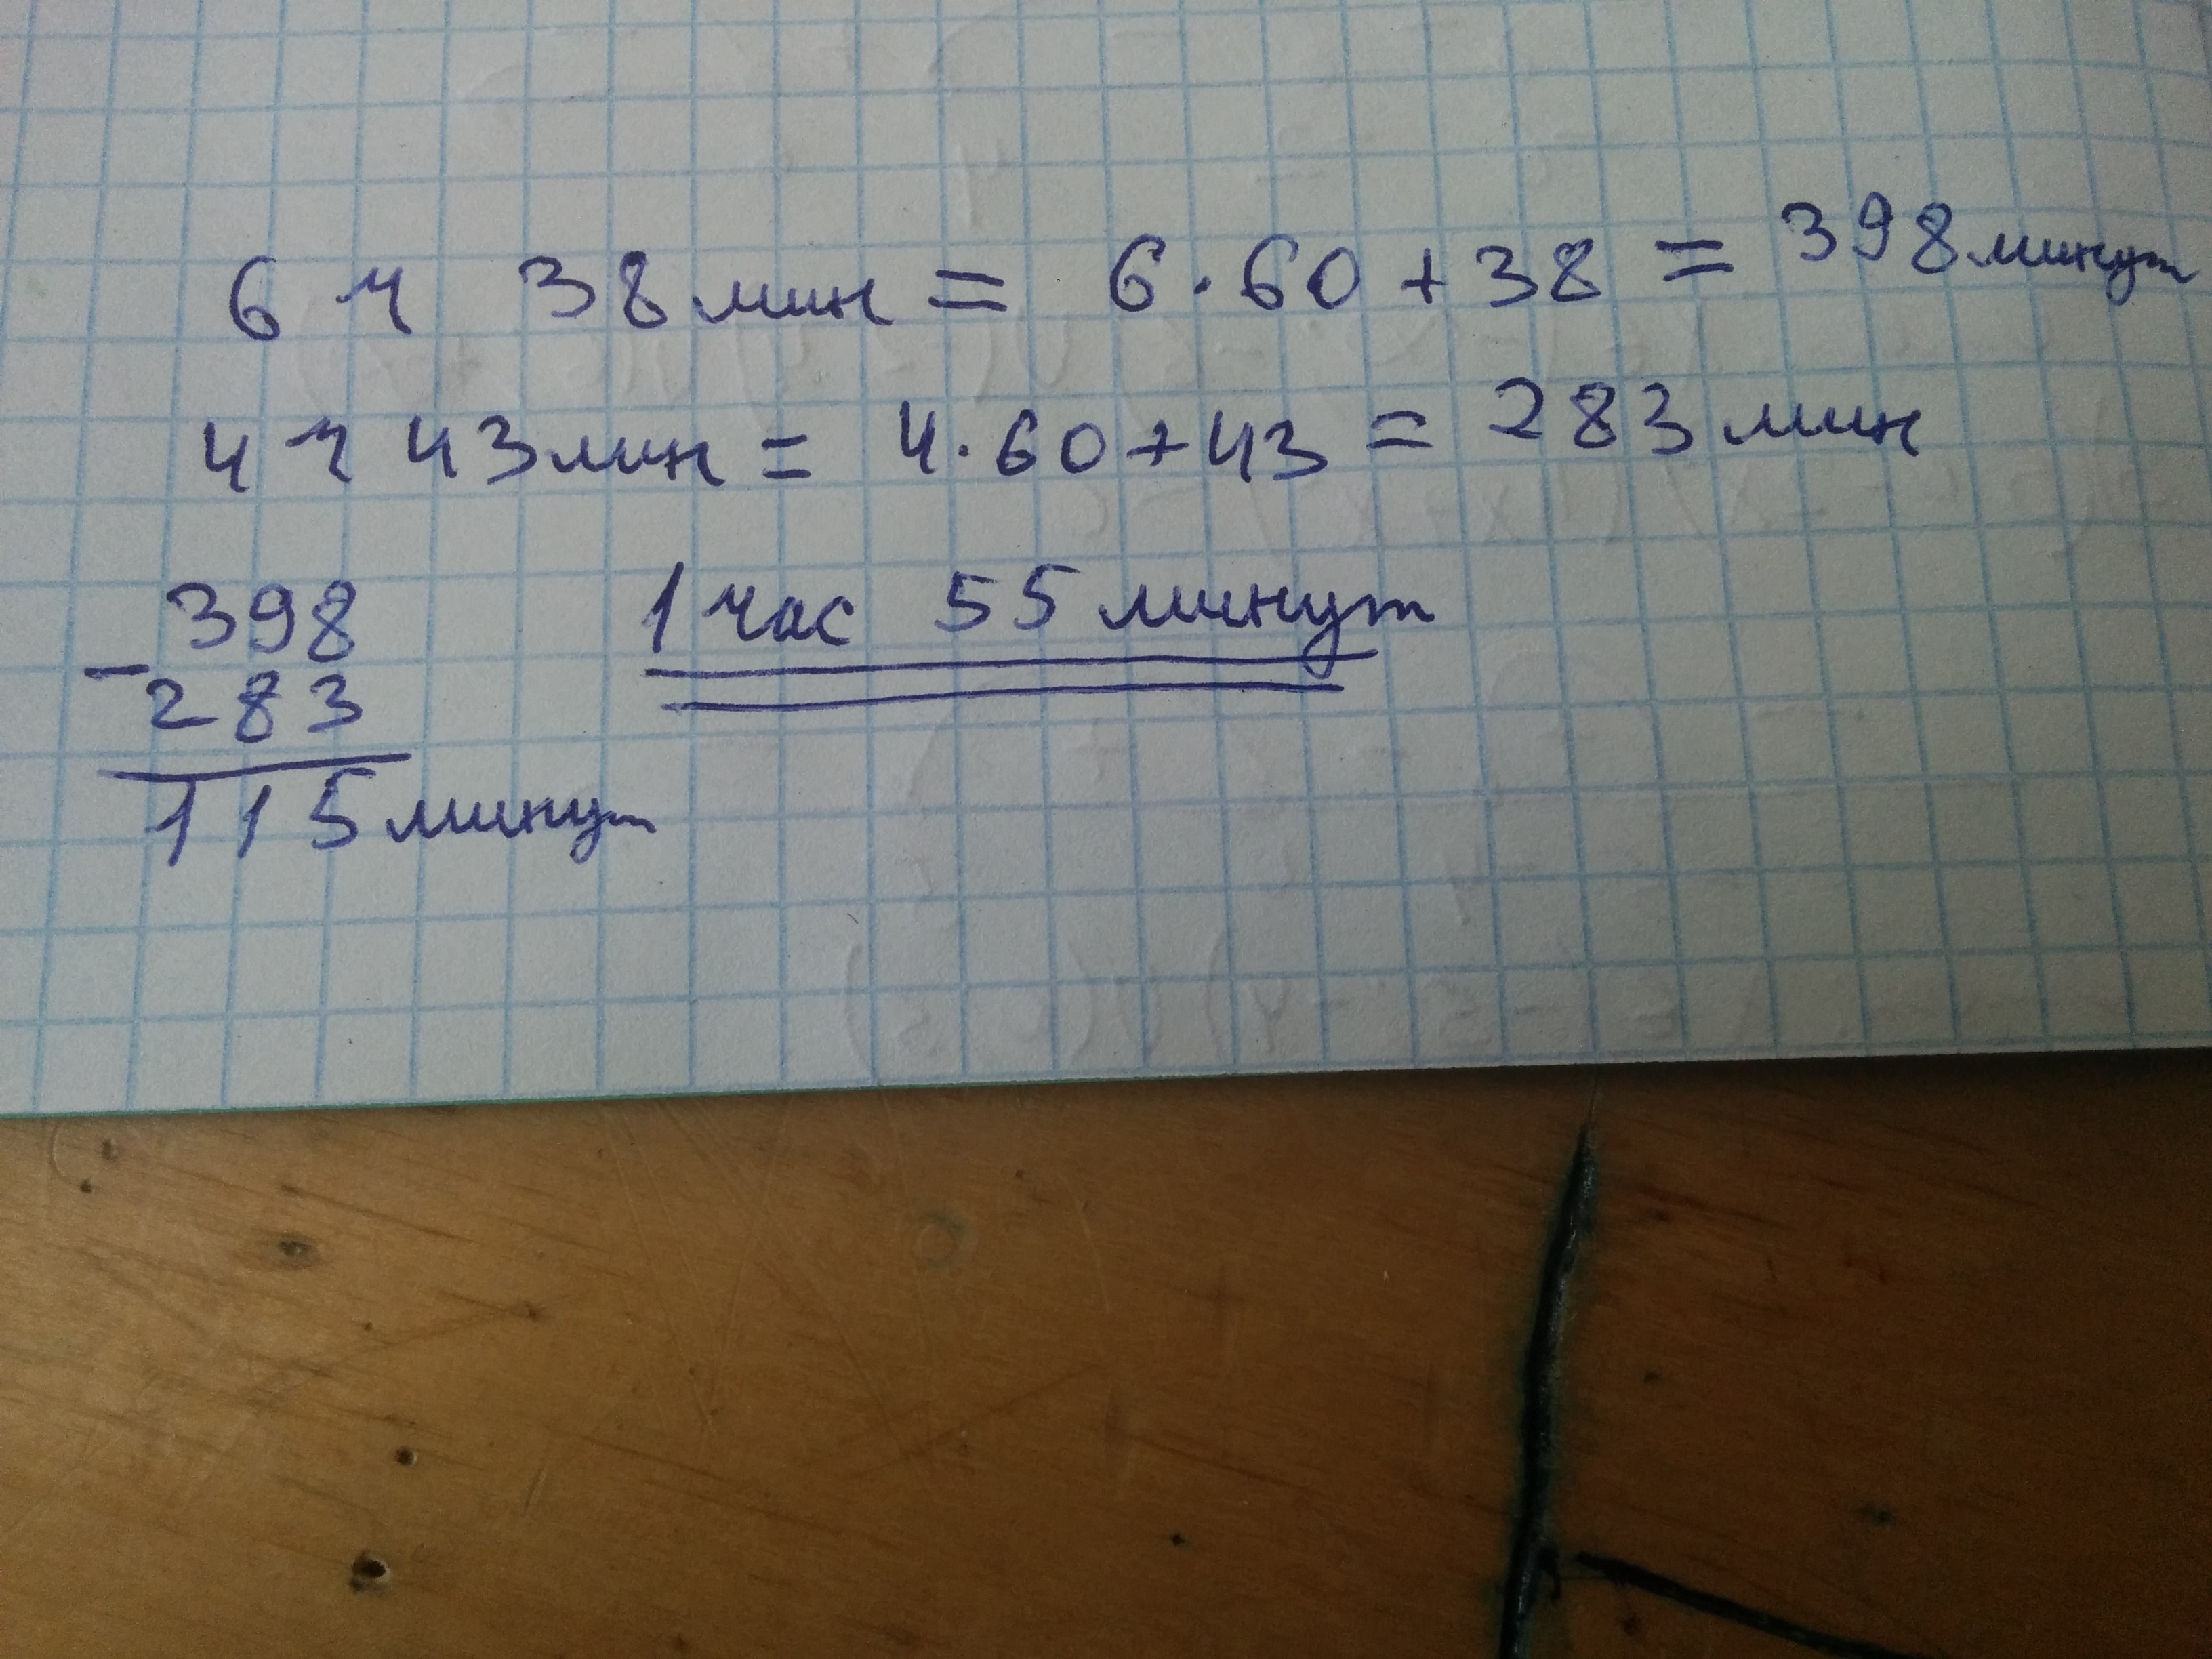 6 ч 38 мин = 6·60+38 = 398 минут
4 ч 43 мин = 4·60+43 = 283 мин
398
1 час 55 минут
- 283
115 минут